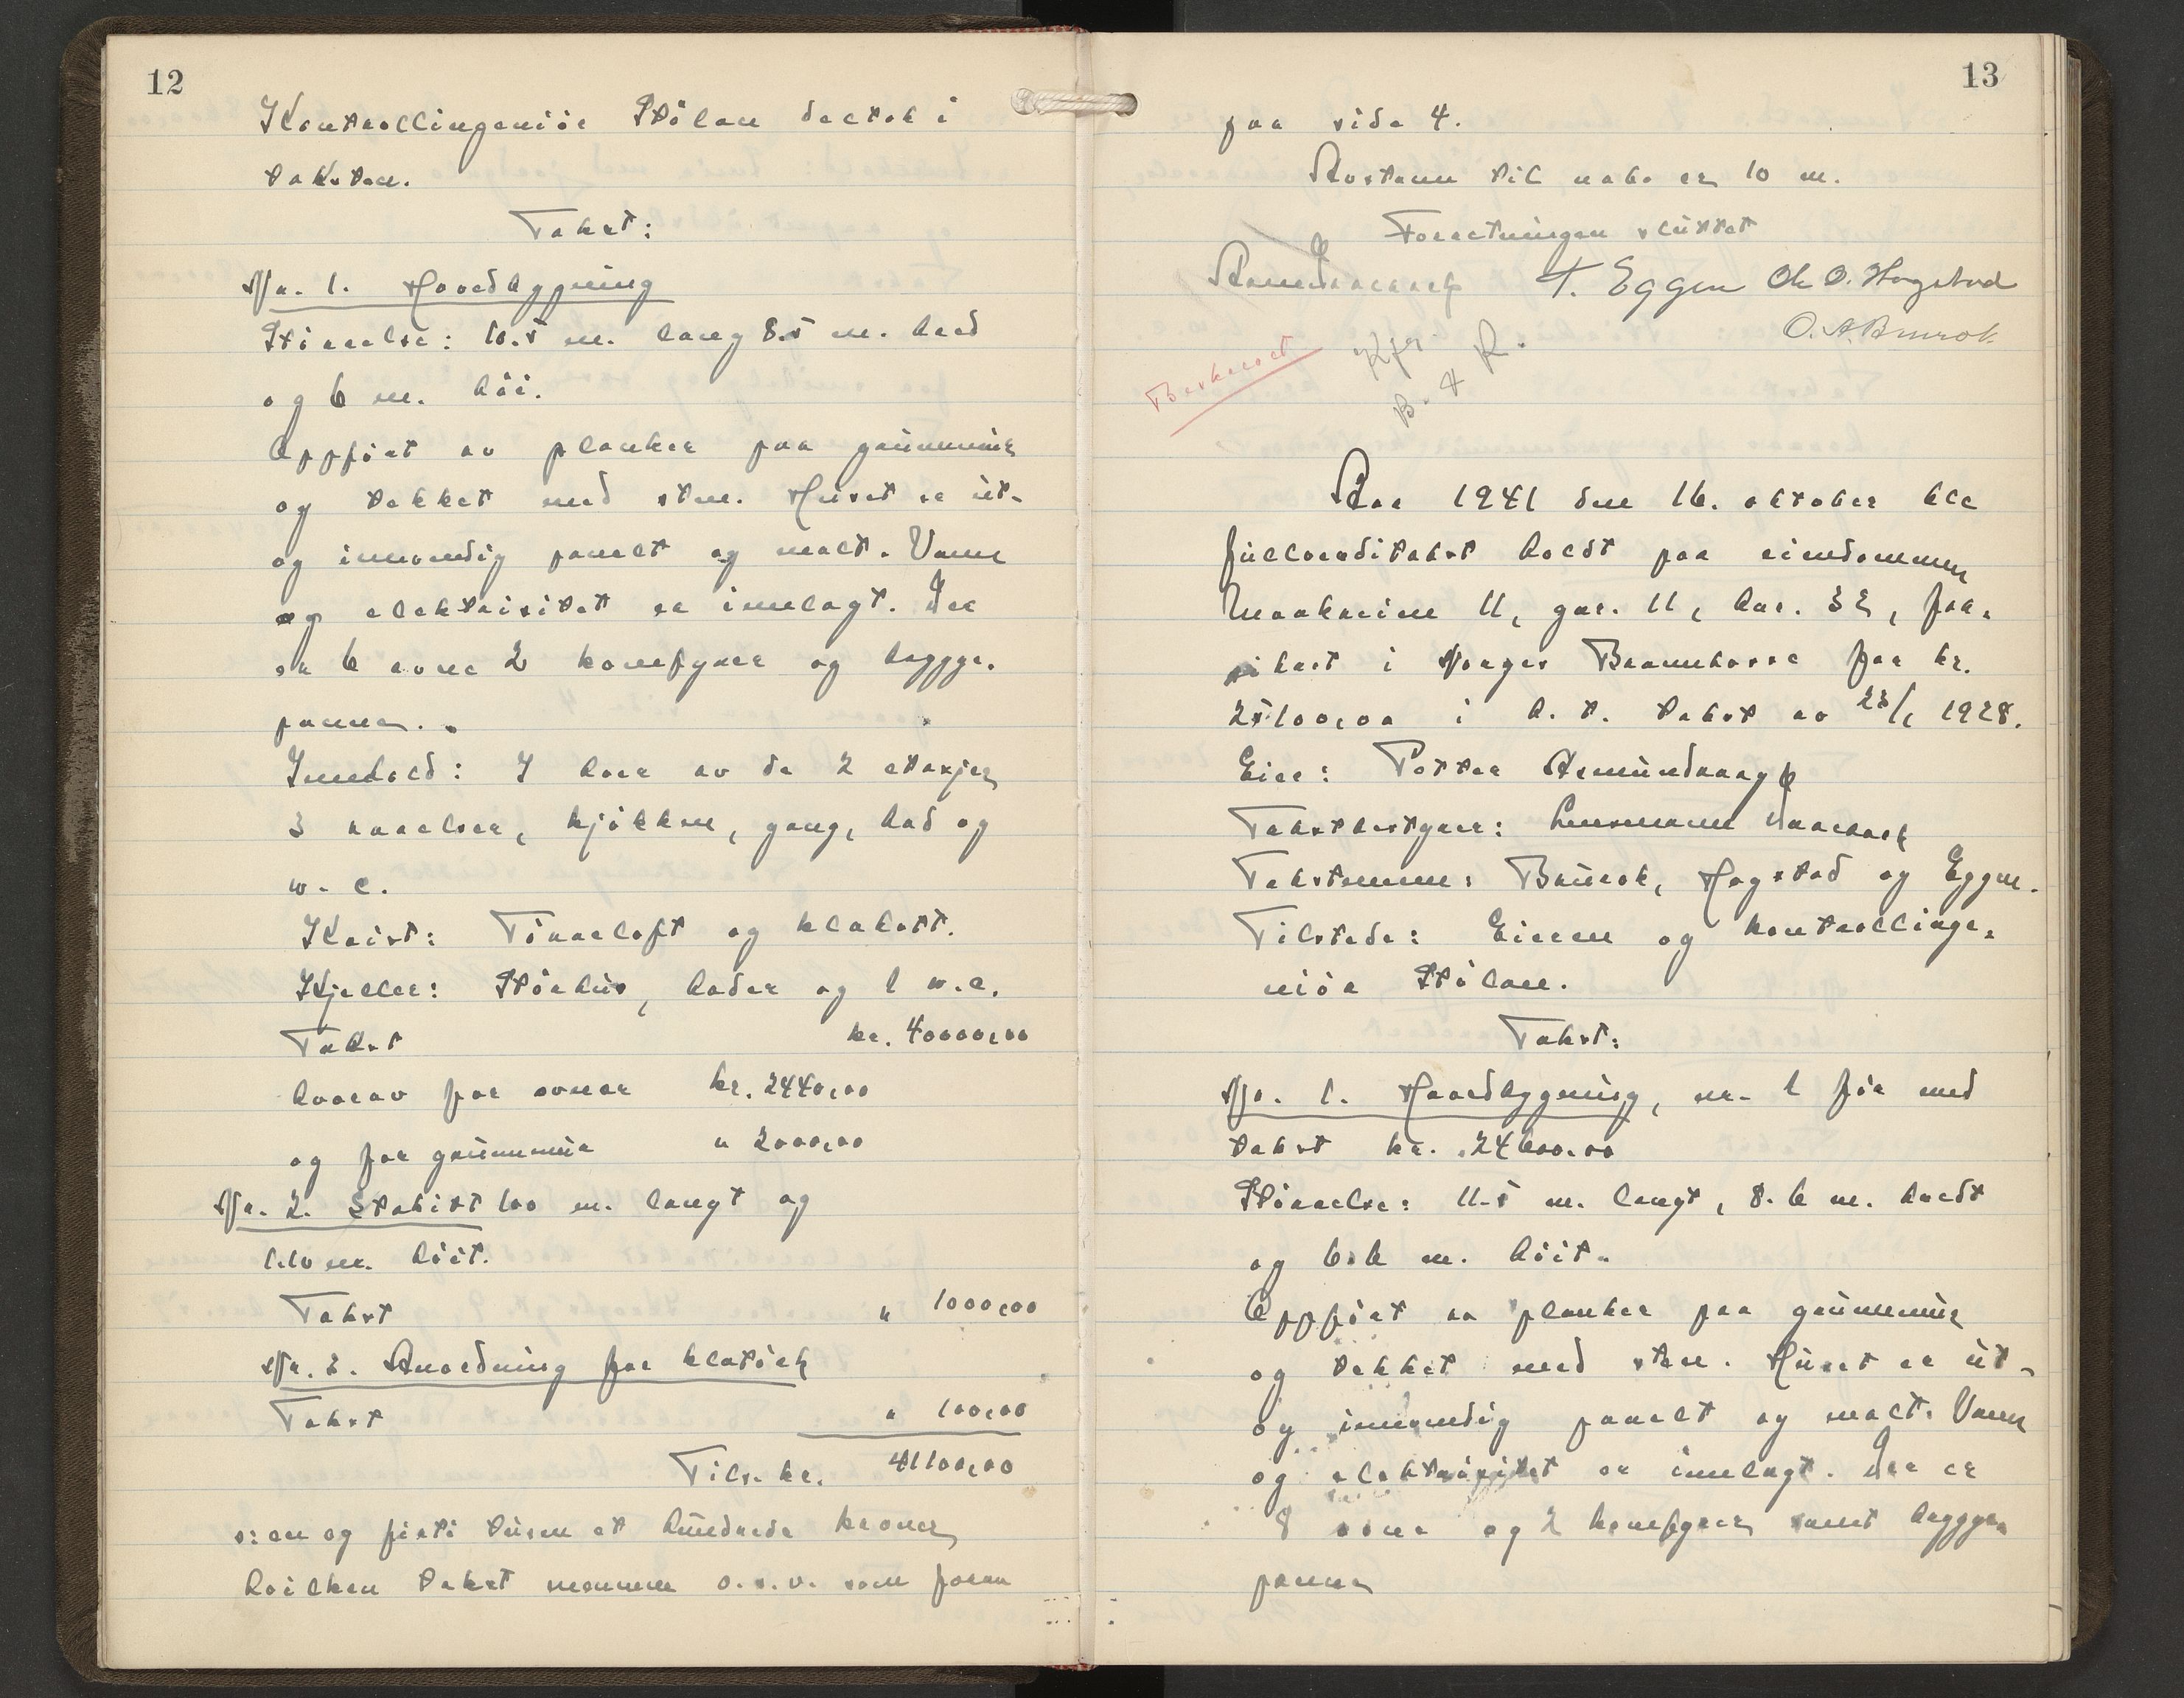 12
Kontrollingeniør Stølan deltok i
taksten.
Takst:
Nr. 1. Hovedbygning
Størrelse: 10.5 m. lang 8.5 m. bred
og 6 m. høi.
Oppført av planker paa grunnmur
og tekket med sten. Huset er ut-
og innvendig panelt og malt. Vann
og elektrisitet er innlagt. Der
er 6 ovne 2 komfyrer og brygge-
panne.
Innhold: I hver av de 2 etasjer
3 værelser, kjøkken, gang, bad og
w. c.
Kvist: Tørreloft og klekott.
Kjeller: Størhus, boder og 1 w.c.
Takst kr. 40000,00
hvorav for ovner kr. 2440,00
og for grunnmur " 2000,00
Nr. 2. Stakitt 100 m. langt og
1.10 m. høit.
Takst " 1000,00
Nr. 3. Anordning for kletørk
Takst " 100,00
Tils. kr. 41100,00
o: en og firti tusen et hundrede kroner
hvilken takst mennene o.s.v. som foran
13
paa side 4.
Avstann til nabo er 10 m.
Forretningen sluttet
T. Eggen Ole O. Hogstad
O. A. Brurok
Beskrevet Kfr.
B. & R.
Aar 1941 den 16. oktober ble
fullverditakst holdt paa eiendommen
Marheim 11, gnr. 11, bnr. 32, for-
sikret i Norges Brannkasse for kr.
25100,00 i h. t. takst av 23/1 1928.
Eier: Petter Asmundvaag
Takstbestyrer: Lensmann Vaarheik
Takstmenn: Brurok, Hogstad og Eggen.
Tilstede: Eieren og kontrollinge-
niør Stølan.
Takst:
Nr. 1. Hovedbygning, nr. 1 før med
takst kr. 24600.00
Størrelse: 11.5 m. langt, 8.6 m. bredt
og 6.6 m. høit.
Oppført av planker paa grunnmur
og tekket med sten. Huset er ut-
og innvendig panelt og malt. Vann
og elektrisitet er innlagt. Der er
8 ovne og 2 komfyrer samt brygge-
panne